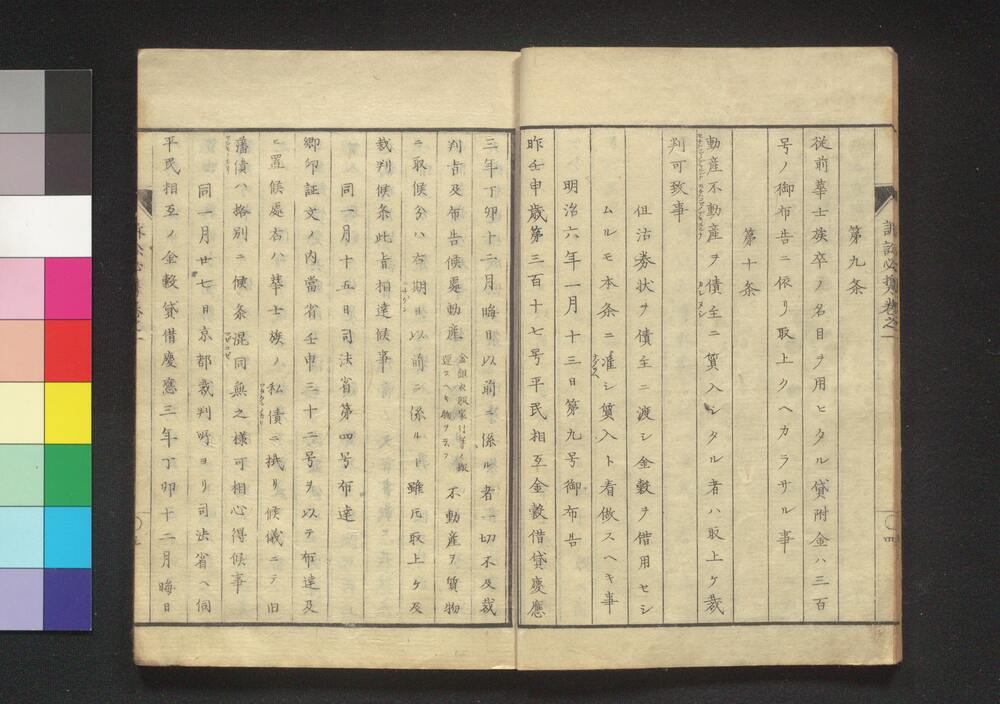 第九条
従前華士族卒ノ名目ヲ用ヒタル貸附金ハ三百
号ノ御布告ニ依リ取上クヘカラサル事
第十条
動産不動産ヲ債主ニ質入シタル者ハ取上ケ裁
判可致事
但沽券状ヲ債主ニ渡シ金穀ヲ借用セシ
ムルモ本条ニ准シ質入ト看做スヘキ事
明治六年一月十三日第九号御布告
昨壬申歳第三百十七号平民相互金穀借貸慶應
三年丁卯十二月晦日以前ニ係ル者一切不及裁
判旨及布告候處動産
不動産ヲ質物
ニ取候分ハ右期日以前ニ係ルト雖𪜈取上ケ及
裁判候条此旨相達候事
同一月十五日司法省第四号布達
郷印証文ノ内當省壬申三十二号ヲ以テ布達及
ヒ置候處右ハ華士族ノ私債ニ抵リ候儀ニテ旧
藩債ハ格別ニ候条混同無之様可相心得候事
同一月廿七日京都裁判所ヨリ司法省ヘ伺
平民相互ノ金穀貸借慶應三年丁卯十二月晦日